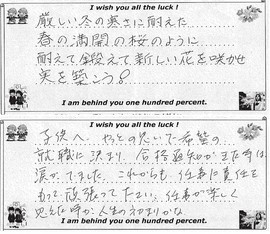 I wish you all the luck !
厳しい冬の寒さに耐えた
春の満開の桜のように
耐えて鍛えて新しい花を咲かせ
実を築こう!
I am behind you one hundred percent.
I wish you all the luck !
子供へ やっとの思いで希望の
就職に決まり、合格通知がきた時は
涙がでました。これからも、仕事に責任を
もって頑張って下さい。仕事が楽しく
思えた時が人生の始まりかな
I am behind you one hundred percent.